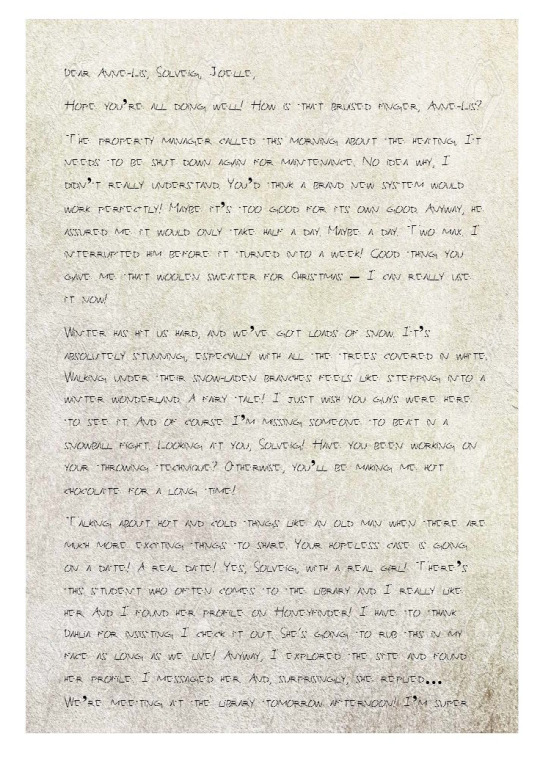 Dear Anne-Lis, Solveig, Joelle,
Hope you're all doing well! How is that bruised finger, Anne-Lis?
The property manager called this morning about the heating. It
needs to be shut down again for maintenance. No idea why, I
didn't really understand. You'd think a brand new system would
work perfectly! Maybe it's too good for its own good. Anyway, he
assured me it would only take half a day. Maybe a day. Two max. I
interrupted him before it turned into a week! Good thing you
gave me that woolen sweater for Christmas — I can really use
it now!
Winter has hit us hard, and we've got loads of snow. It's
absolutely stunning, especially with all the trees covered in white.
Walking under their snow-laden branches feels like stepping into a
winter wonderland. A fairy tale! I just wish you guys were here
to see it. And of course I'm missing someone to beat in a
snowball fight. Looking at you, Solveig! Have you been working on
your throwing technique? Otherwise, you'll be making me hot
chocolate for a long time!
Talking about hot and cold things like an old man when there are
much more exciting things to share. Your hopeless case is going
on a date! A real date! Yes, Solveig, with a real girl! There's
this student who often comes to the library and I really like
her. And I found her profile on Honeyfinder! I have to thank
Dahlia for insisting I check it out. She's going to rub this in my
face as long as we live! Anyway, I explored the site and found
her profile. I messaged her. And, surprisingly, she replied...
We're meeting at the library tomorrow afternoon!! I'm super